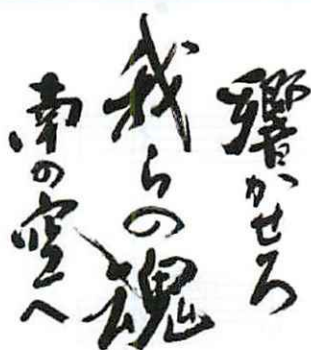 響かせろ
我らの魂
南の空へ